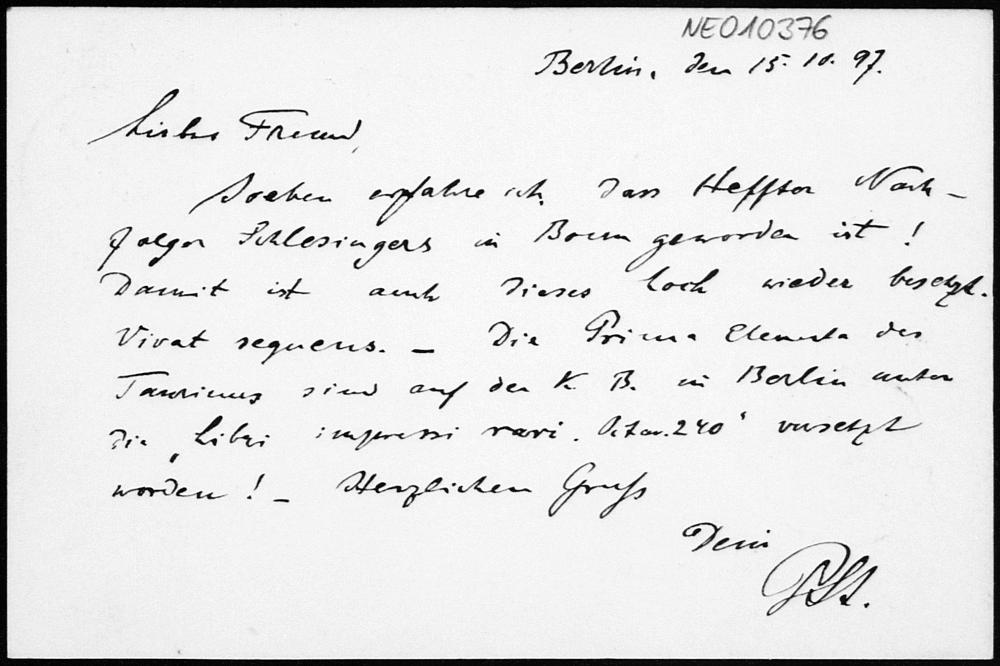 NE010376
Berlin, den 15. 10. 97.
Liebes Freund,
Soeben erfahre ich, dass Heffter Nach-
folger Schlesingers in Bonn geworden ist!
Damit ist auch dieses Loch wieder besetzt.
Vivat sequens. – Die Prima Elementa des
Taurinus sind auf der K. B. in Berlin unter
die „Libri impressi rari. Octav. 240" versetzt
worden! – Herzlichen Gruss
Dein
PSt.